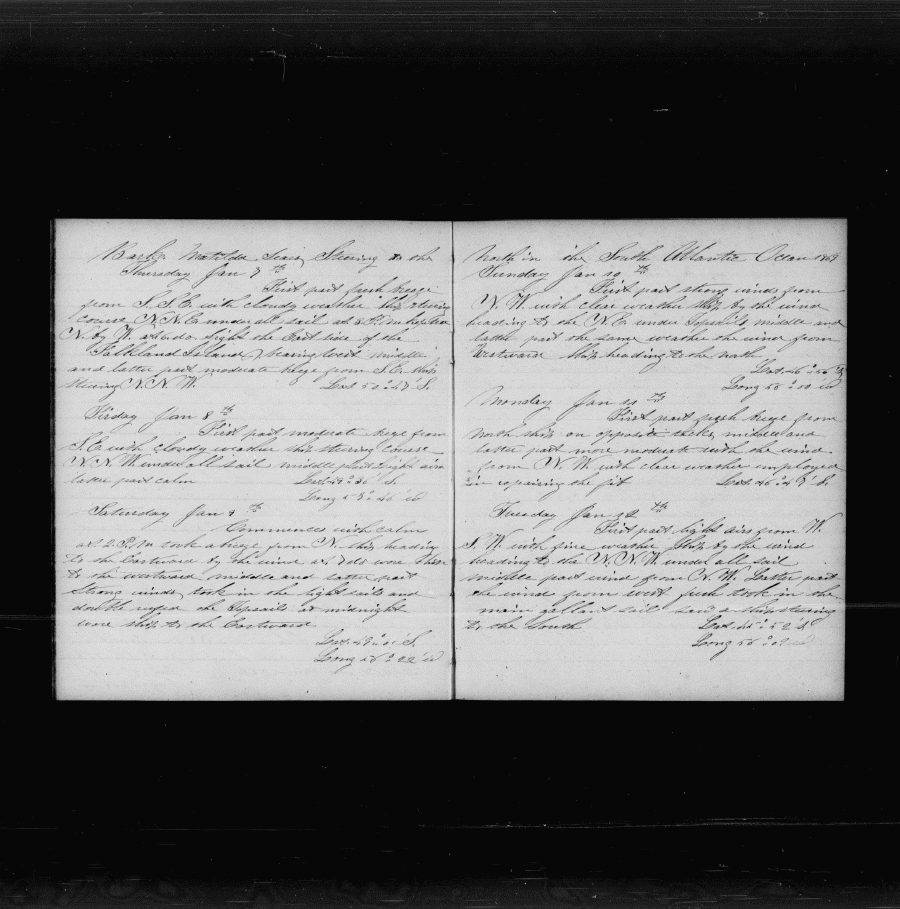 Bark Matilda Sears Steering to the
Thursday Jan 7th
First part fresh breeze
from S.S.E. with cloudy weather ship steering
course N.N.E. under all sail at 3 P.M. kept on
N. by W. at 6 do. sight the East side of the
Falkland Islands bearing West middle
and latter part moderate breeze from S.E. ship
steering N.N.W. Lat 50° 47' S.
Firday Jan 8th
First part moderate breze from
S.E. with cloudy weather ship steering course
N.N.W. under all sail middle part light airs
latter part calm Lat S.
Long W
Saturday Jan 9th
Commences with calm
at 2 P.M. took a breze from N. ship heading
to the Eastward by the wind at 7 do wore ship
to the westward middle and latter part
Strong winds took in the light sails and
double reefed the Topsails at midnight
wore ship to the Eastward
Lat S.
Long 56° 22' W
North in the South Atlantic Ocean 1869
Sunday Jan 10th
First part strong winds from
N.W. with clear weather ship by the wind
heading to the N.E. under Topsails middle and
latter part the same weather the wind from
Westward ship heading to the north
Lat 46° S
Long 55° W
Monday Jan 11th
First part fresh breze from
North ship on opposite tacks, middle and
latter part more moderate with the wind
from N.W. with clear weather employed
in repairing the jib Lat S.
Tuesday Jan 12th
First part light airs from W.
S.W. with fine weather ship by the wind
heading to the N.N.W. under all sail
middle part wind from N.W. Latter part
the wind from West fresh took in the
main gallant sail saw a ship steering
to the South Lat 52' S
Long 56° W